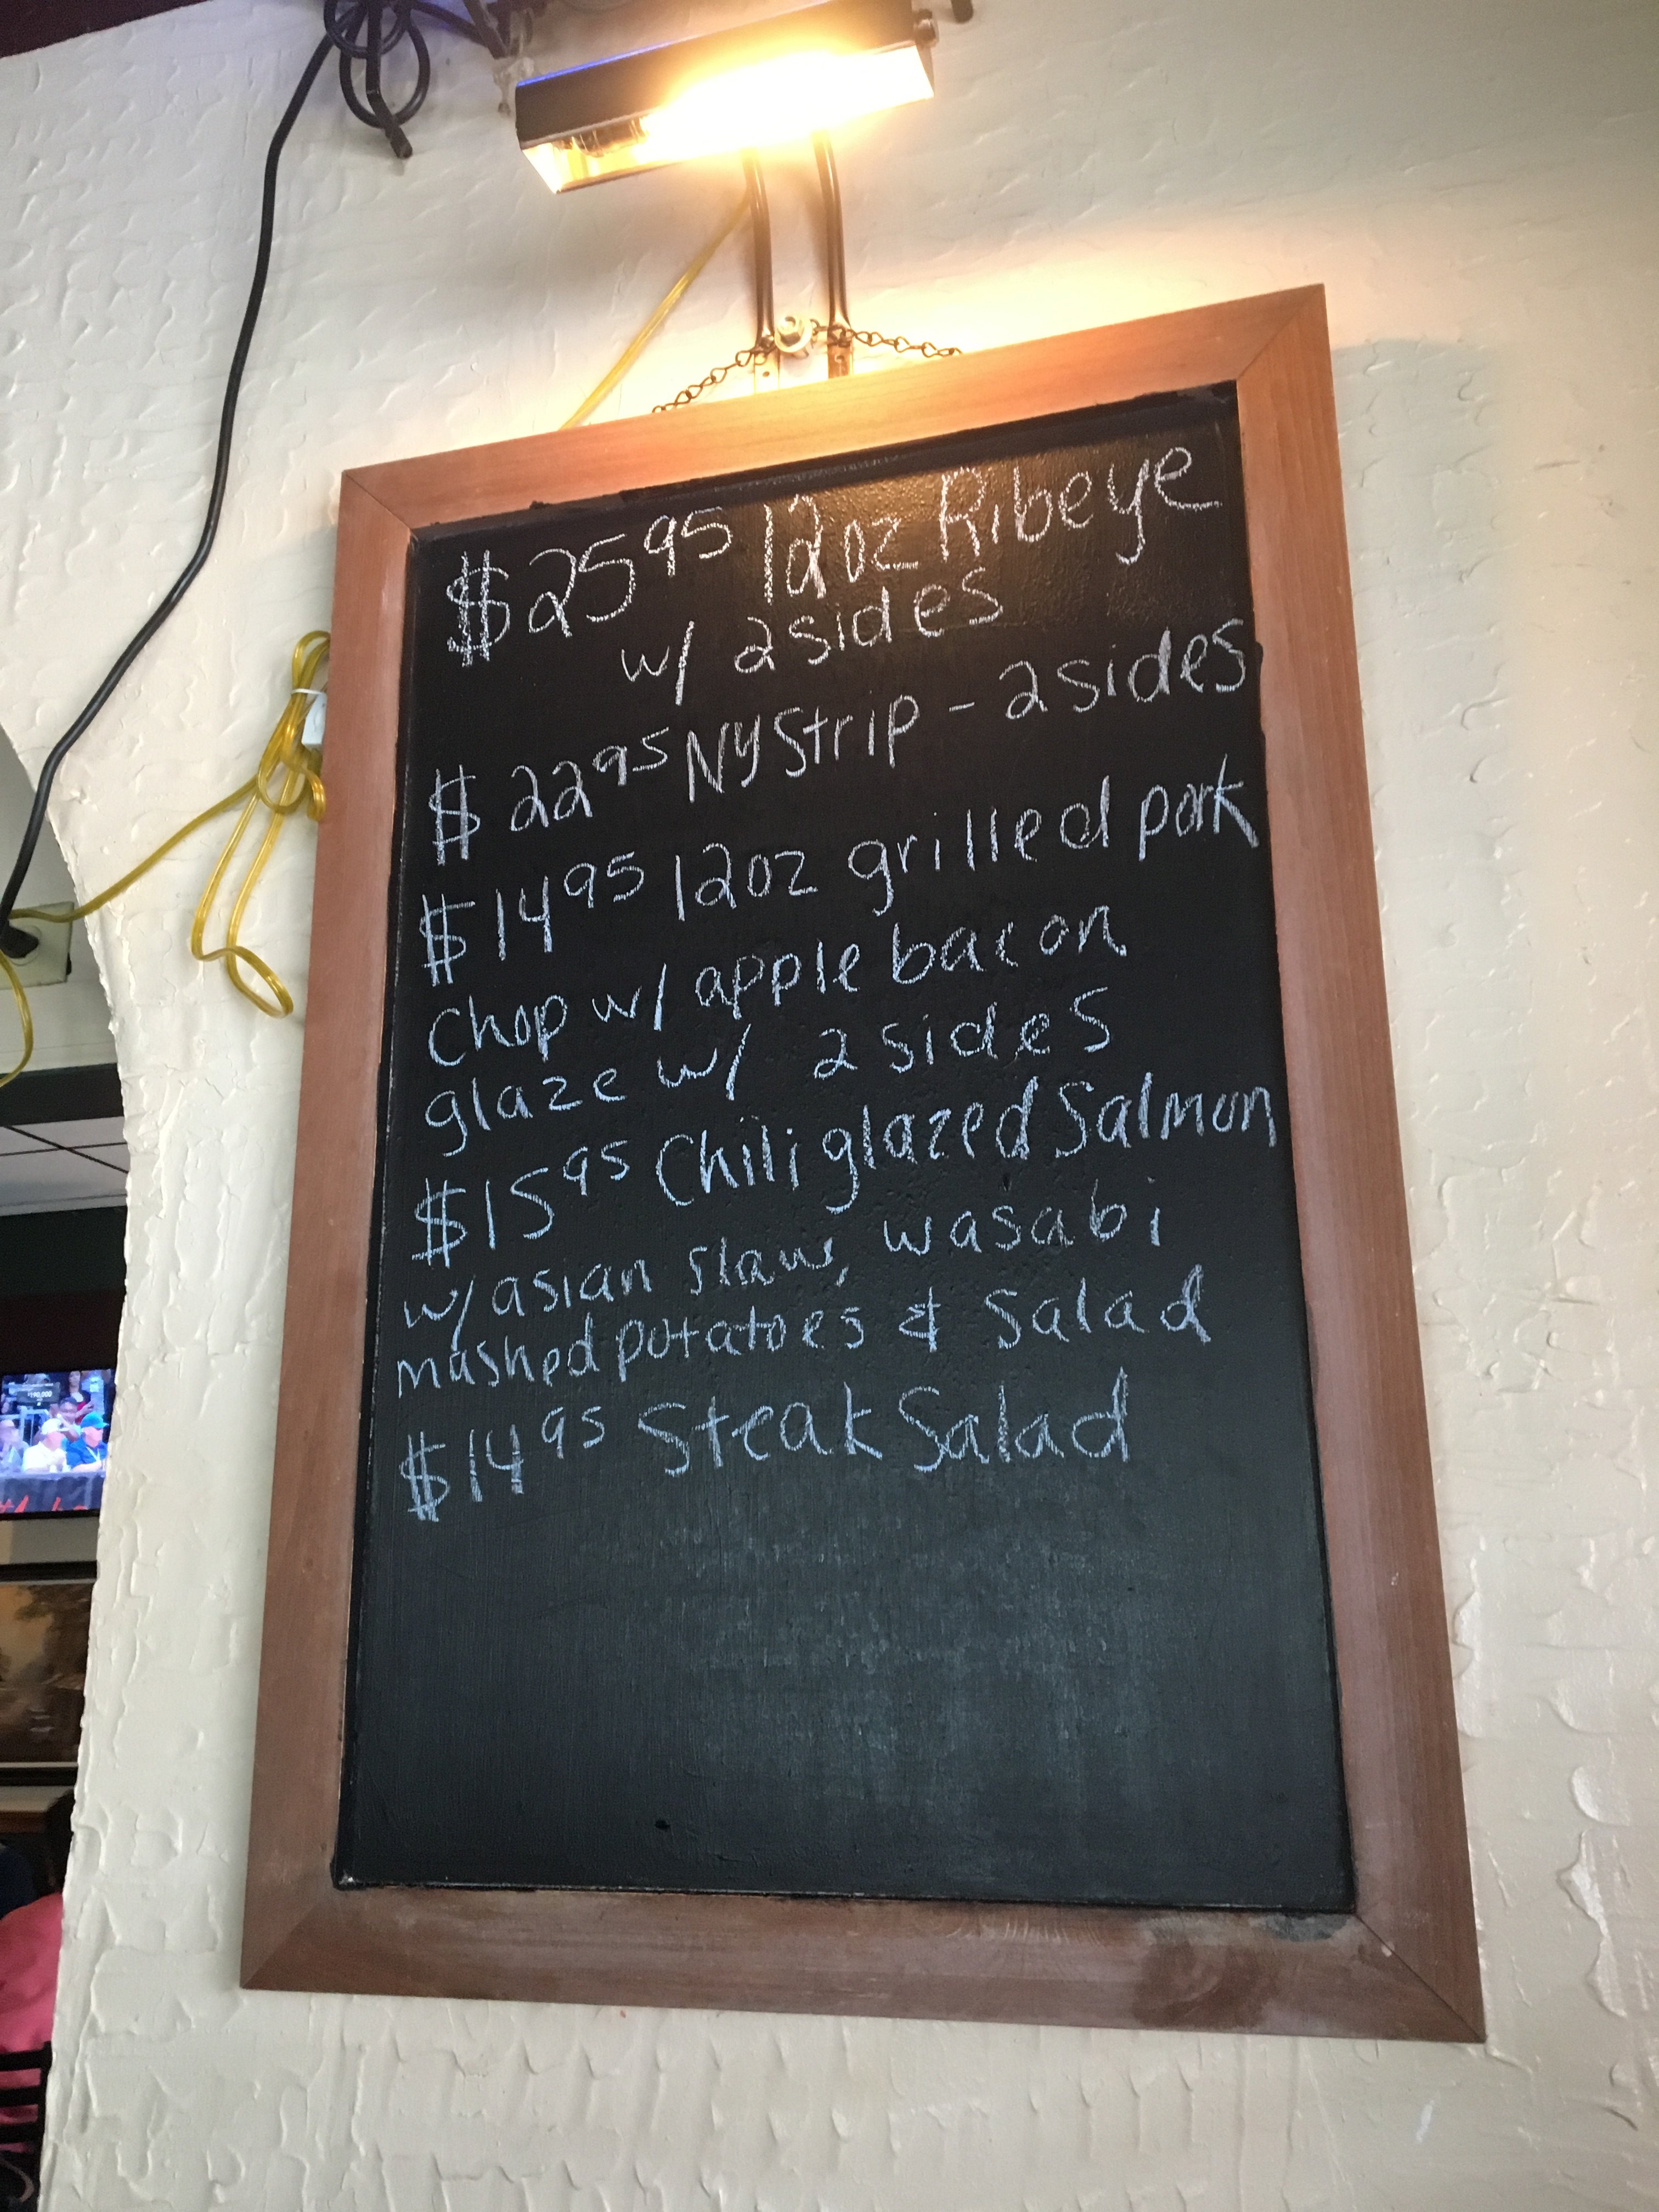 $25 95 12oz Ribeye
w/ 2 sides
$22 95 NY Strip - 2 sides
$14 95 12oz grilled pork
Chop w/ apple bacon
glaze w/ 2 sides
$15 95 Chili glazed Salmon
w/ asian slaw, wasabi
mashed potatoes & Salad
$14 95 Steak Salad